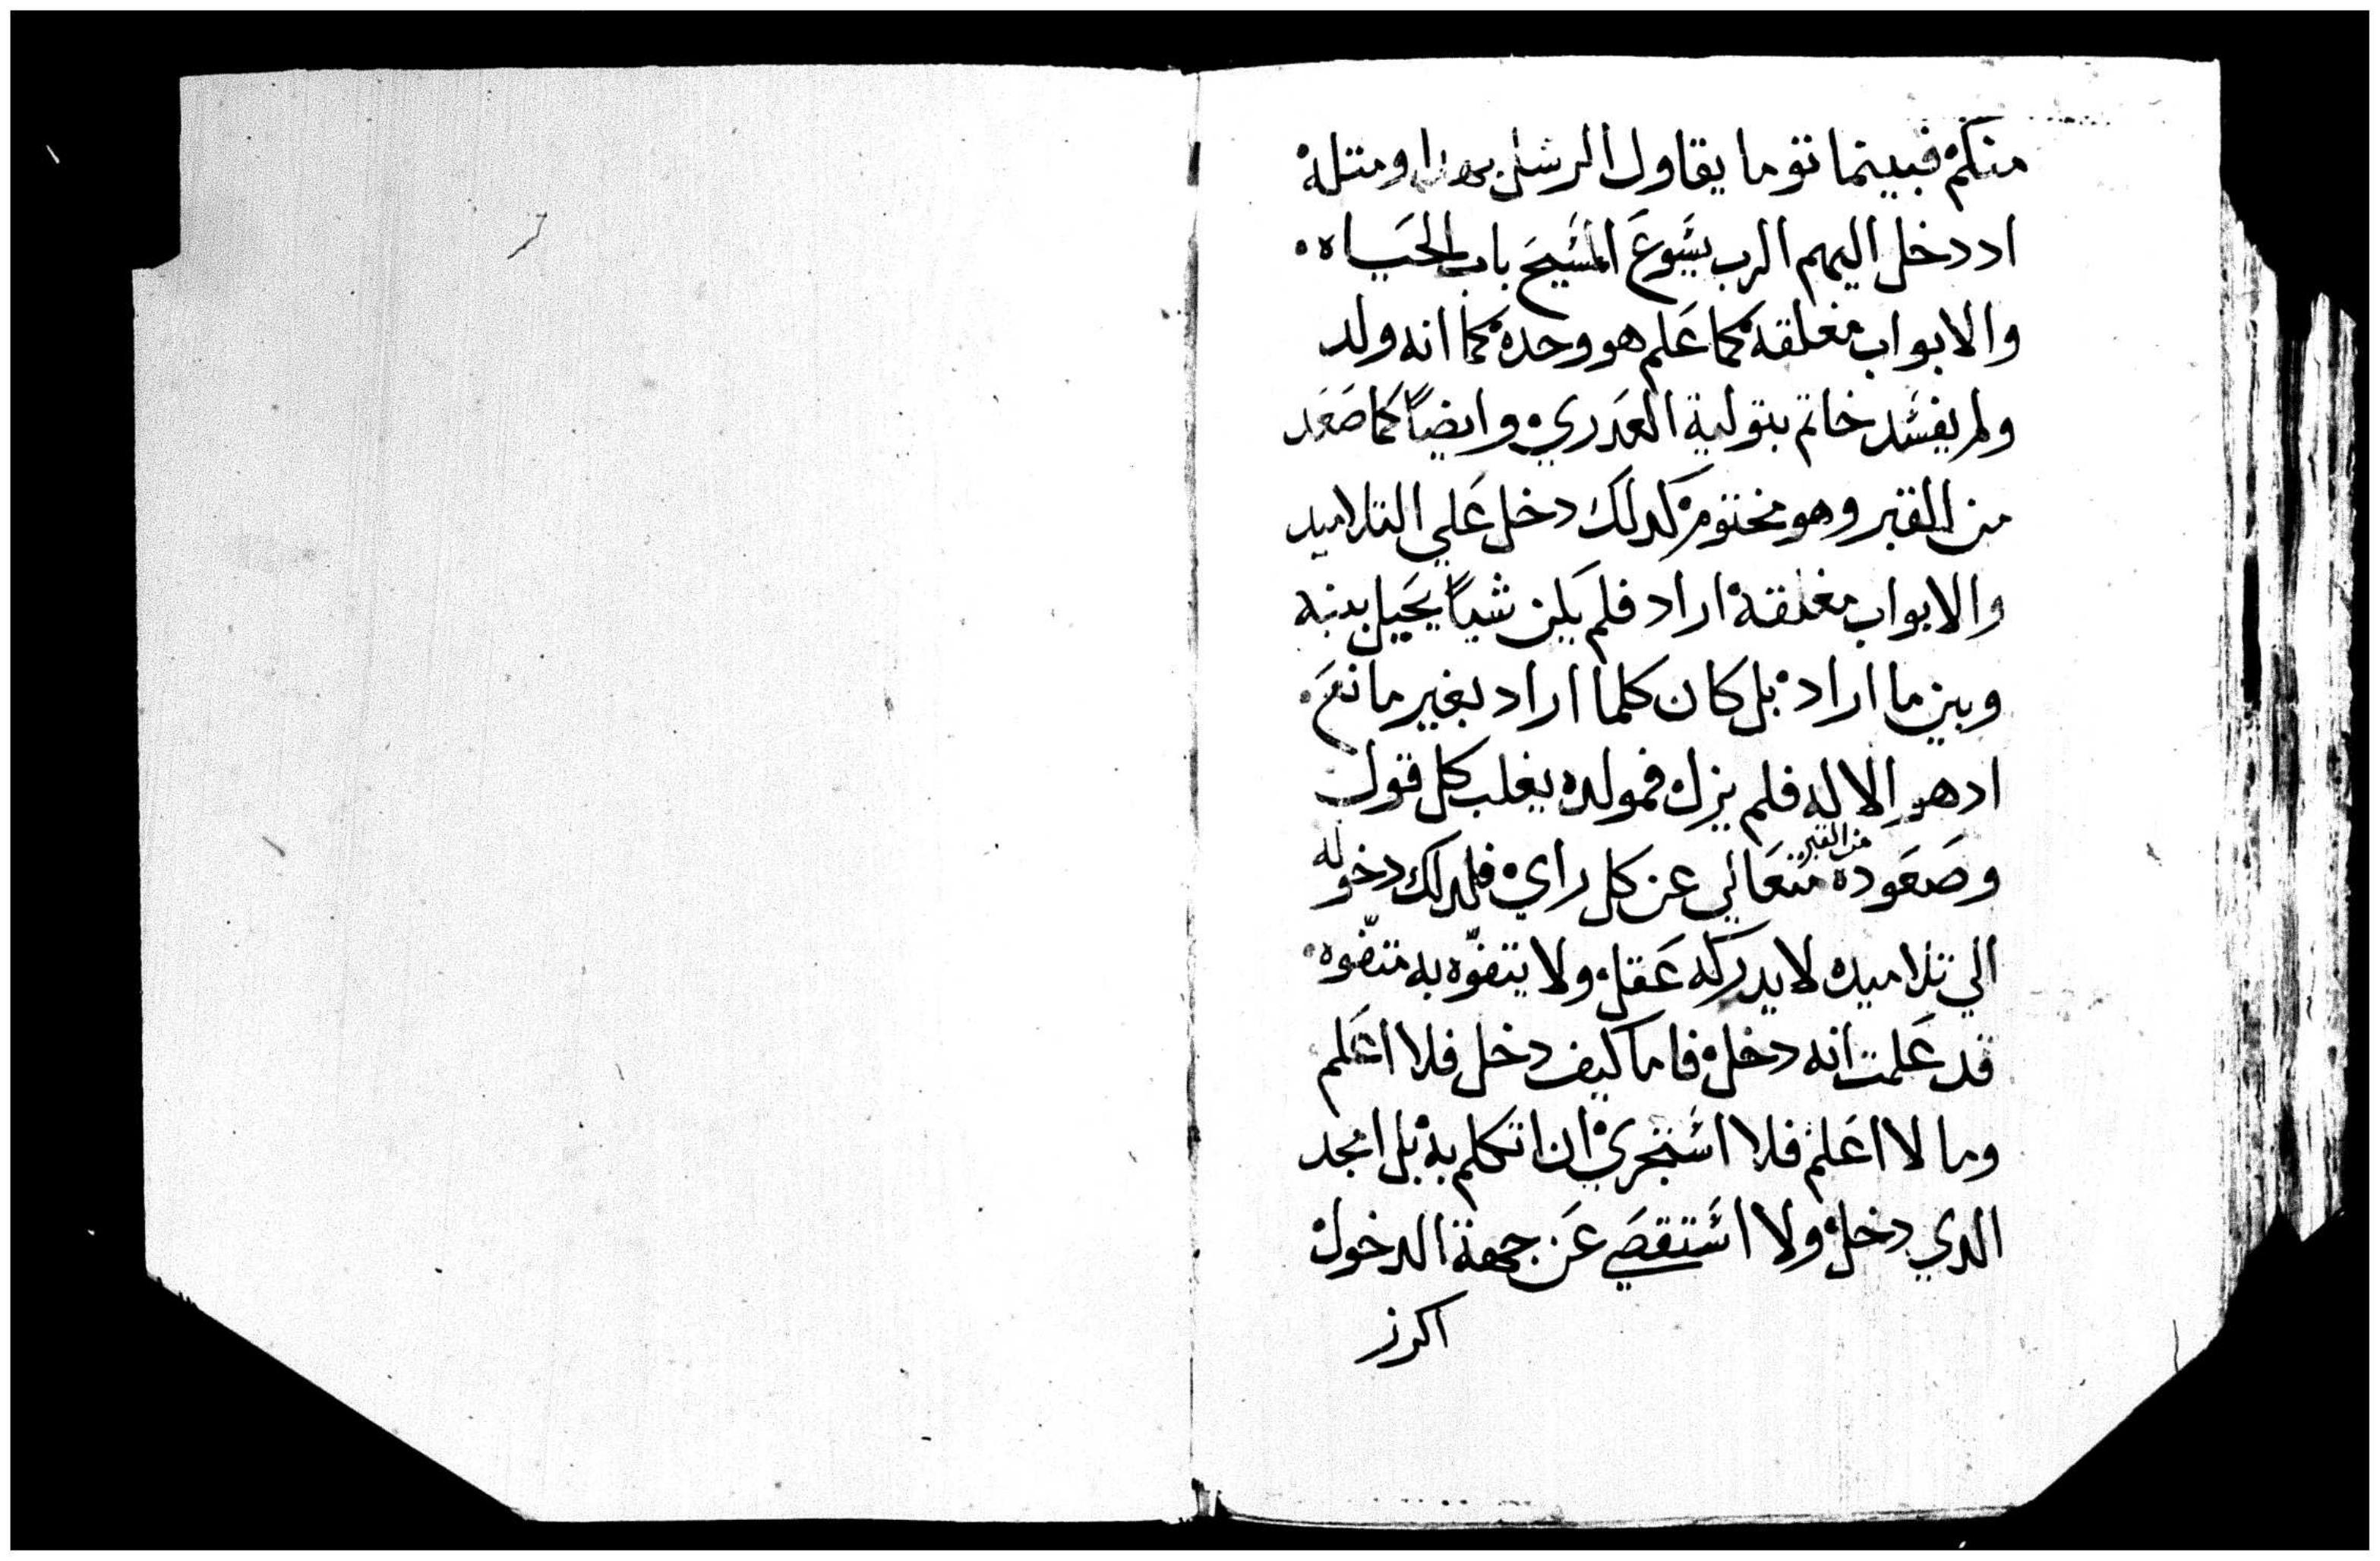 منكم فبينما توما يقاول الرسل بهدا ومتله
اد دخل اليهم الرب يسوع المسيح باب الحياه
والابواب مغلقه كما علم هو وحده كما انه ولد
ولم يفسد خاتم بتولية العدري وايضاً كما صعد
من القبر وهو مختوم كدلك دخل علي التلاميد
والابواب مغلقة اراد فلم يكن شياً يحيل بينه
وبين ما اراد بل كان كلما اراد بغير مانع
اد هو الاله فلم يزل فمولده يغلب كل قول
وصعوده من القبر متعالي عن كل راي فلدلك دخوله
الي تلاميده لا يدركه عقل ولا يتفوّه به متفّوه
قد علمت انه دخل فاما كيف دخل فلا اعلم
وما لا اعلم فلا استجري ان اتكلم به بل امجد
الدي دخل ولا استقصي عن جهة الدخول
اكرز